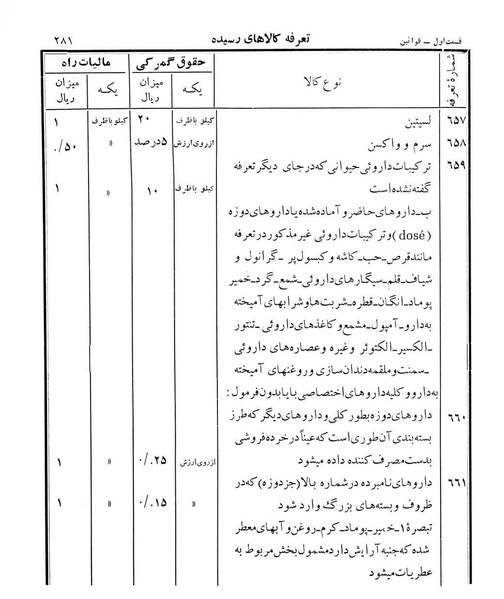 قسمت اول ــ قوانین
تعرفه کالاهای رسیده
۲۸۱
شمارهٔ تعرفه
نوع کالا
حقوق گمرکی
مالیات راه
یکه
میزان ریال
یکه
میزان ریال
۶۵۷ لسیتین کیلو باظرف ۲۰ کیلو باظرف ۱
۶۵۸ سرم و واکسن از روی ارزش ۵درصد » ۵۰/.
۶۵۹ ترکیبات داروئی حیوانی که درجای دیگر تعرفه
گفته نشده است کیلو باظرف ۱۰ » ۱
ب ـ داروهای حاضر و آماده شده یا داروهای دوزه
(dosé) و ترکیبات داروئی غیر مذکور در تعرفه
مانند قرص ـ حب ـ کاشه و کپسول پر ـ گرانول و
شیاف ـ قلم ـ سیگارهای داروئی ـ شمع ـ گرد ـ خمیر
پوماد ـ انگان ـ قطره ـ شربت ها و شرابهای آمیخته
به دارو ـ آمپول ـ مشمع و کاغذهای داروئی ـ تنتور
ـ الکسیر ـ الکتوئر وغیره و عصاره های داروئی
ـ سمنت و ملقمه دندان سازی و روغنهای آمیخته
به دارو و کلیه داروهای اختصاصی با یا بدون فرمول :
۶۶۰ داروهای دوزه بطور کلی و داروهای دیگر که طرز
بسته بندی آن طوری است که عیناً در خرده فروشی
بدست مصرف کننده داده میشود از روی ارزش ۰/.۲۵ » ۱
۶۶۱ داروهای نامبرده در شماره بالا (جز دوزه) که در
ظروف و بسته های بزرگ وارد شود » ۰/.۱۵ » ۱
تبصرهٔ ۱ ـ خمیر ـ پوماد ـ کرم ـ روغن و آبهای معطر
شده که جنبه آرایش دارد مشمول بخش مربوط به
عطریات میشود